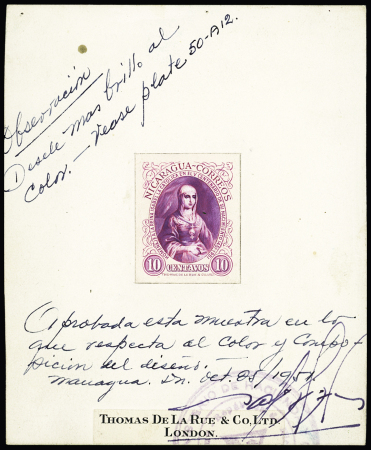 Observación
Desele mas brillo al
color. — Vease plate 50-A12.
NICARAGUA-CORREOS
10 CENTAVOS 10
Aprobada esta muestra en lo
que respecta al color y compo-
sicion del diseño. —
Managua. D.N. Oct. 25/951.
THOMAS DE LA RUE & CO, LTD.
LONDON.